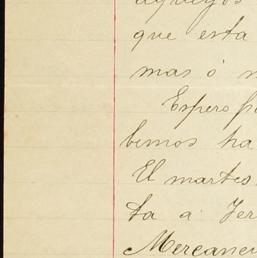 que esta
mas ó
Espero
bemos ha
El martes
ta a Jer
Mercanci